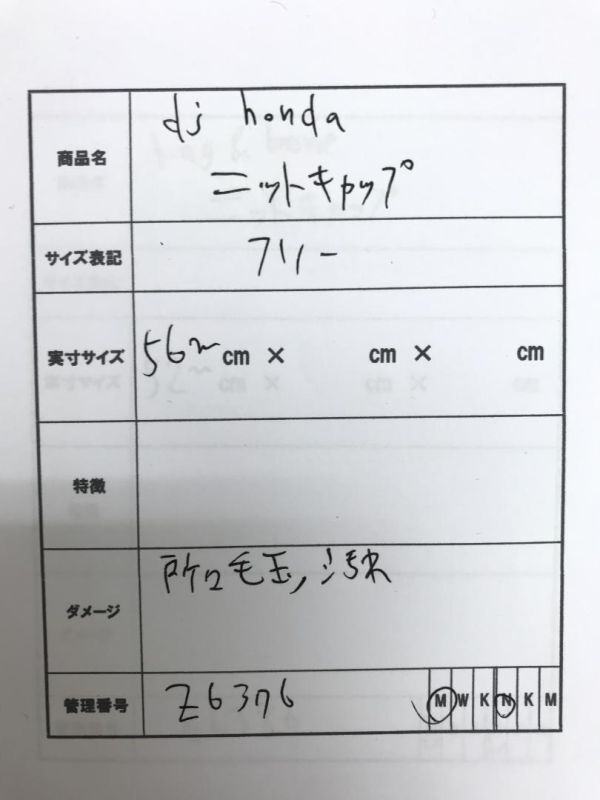 商品名
dj honda
ニットキャップ
サイズ表記
フリー
実寸サイズ
56〜 cm × cm × cm
特徴
ダメージ
所々毛玉,汚れ
管理番号
Z6376
M W K N K M